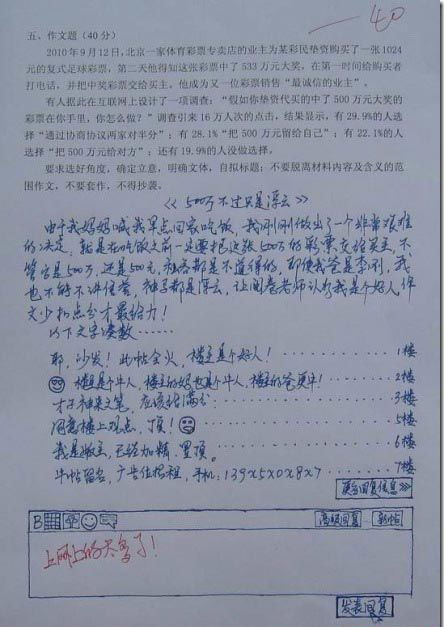 -40
五、作文题(40分)
2010年9月12日,北京一家体育彩票专卖店的业主为某彩民垫资购买了一张1024
元的复式足球彩票,第二天他得知这张彩票中了533万元大奖,在第一时间给购买者
打电话,并把中奖彩票交给买主。他成为又一位彩票销售“最诚信的业主”。
有人据此在互联网上设计了一项调查:“假如你垫资代买的中了500万元大奖的
彩票在你手里,你怎么做?”调查引来16万人次的点击,结果显示,有29.9%的人选
择“通过协商协议两家对半分”;有28.1%“把500万元留给自己”;有22.1%的人
选择“把500万元给对方”;还有19.9%的人没做选择。
要求选好角度,确定立意,明确文体,自拟标题;不要脱离材料内容及含义的范
围作文,不要套作,不得抄袭。
《500万不过只是浮云》
由于我妈妈喊我早点回家吃饭,我刚刚做出了一个非常艰难
的决定,就是在吃饭之前一定要把这张500万的彩票交给买主,不
管它是500万,还是500元,私吞都是不道得的,即使我爸是李刚,我
也不能不讲信誉,神马都是浮云,让阅卷老师认为我是个好人,作
文少扣点分才最给力!
以下文字凑数……
耶,沙发!此帖会火,楼主是个好人!…………1楼
楼主是个牛人,楼主的妈也是个牛人,楼主的爸更牛!…………2楼
才子神来之笔,应该给满分…………3楼
同意楼上观点,顶!…………5楼
我是版主,已经加精,置顶。…………6楼
牛帖留名,广告位招租,手机:139x5x0x8x7…………7楼
更多回复信息>>
B
高级回复 新帖
上网上的太多了!
发表回复